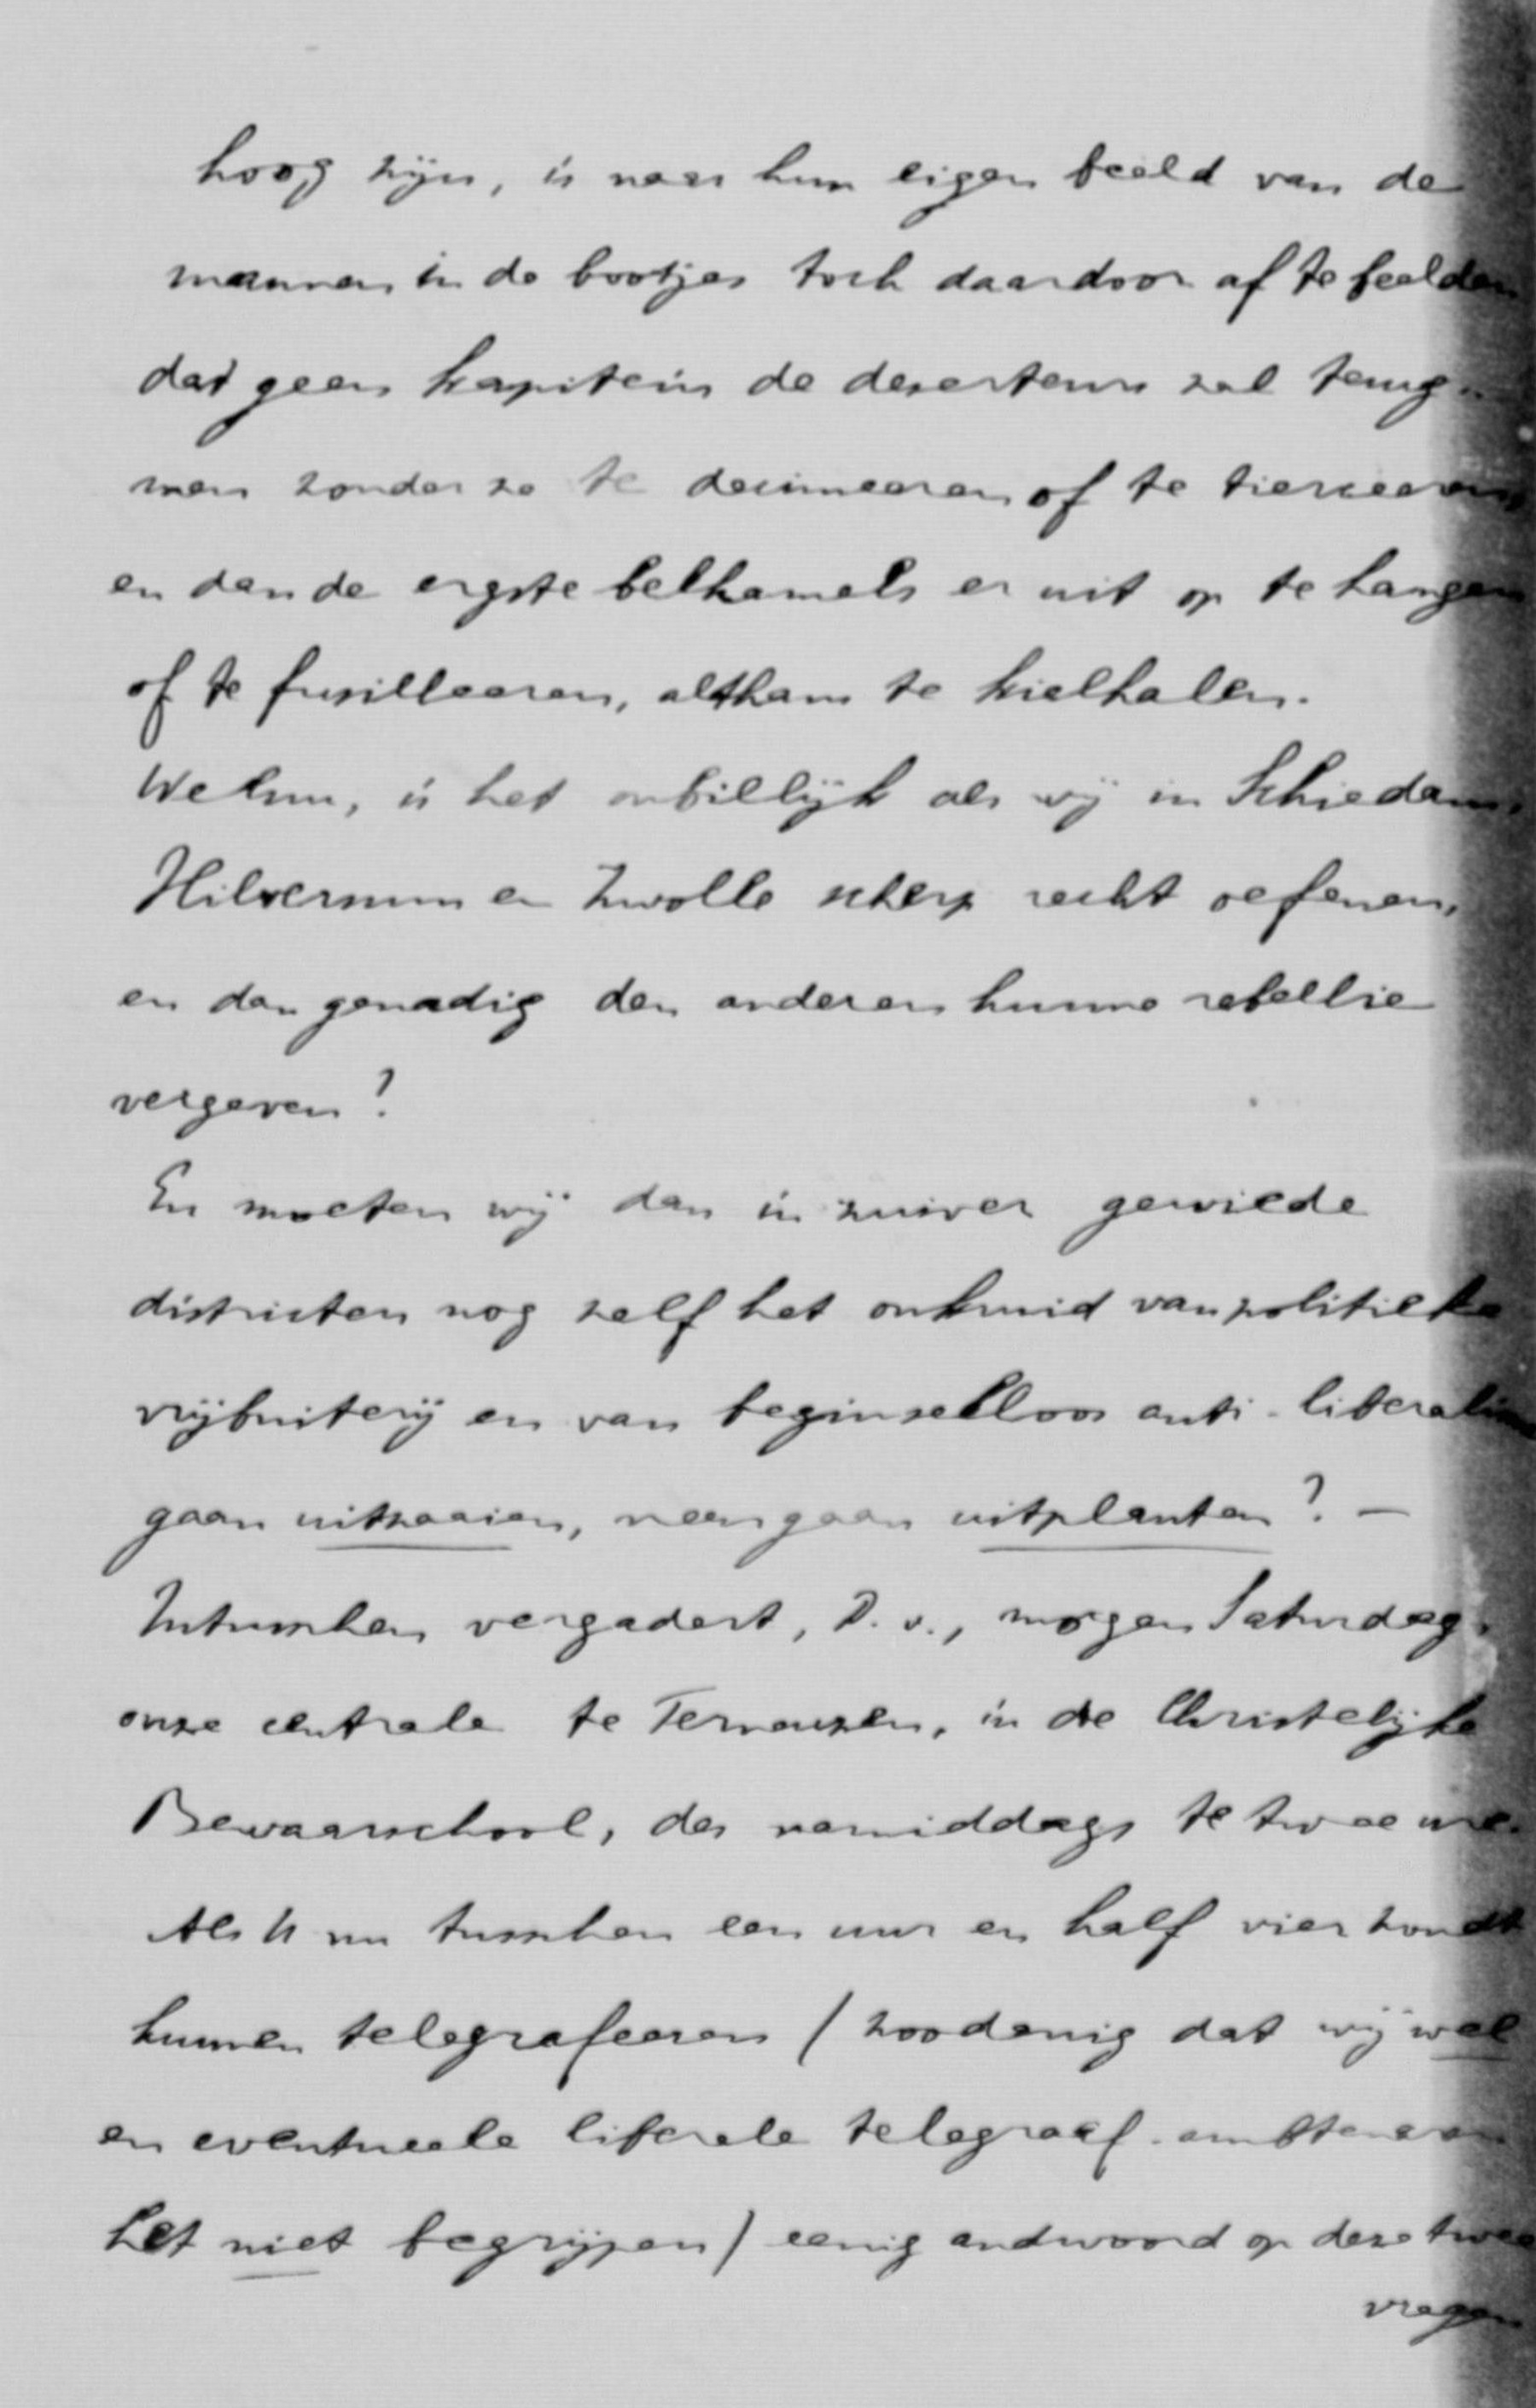 hoog zijn, is naar hun eigen beeld van de
mannen in de bootjes toch daardoor af te beelden
dat geen kapitein de deserteurs zal terug-
men zonder ze te decimeeren of te tierceeren,
en dan de ergste belhamels er uit op te hangen
of te fusilleeren, althans te kielhalen.
Welnu, is het onbillijk als wij in Schiedam,
Hilversum en Zwolle scherp recht oefenen,
en dan genadig den anderen hunne rebellie
vergeven?
En moeten wij dan in zuiver gewiede
districten nog zelf het onkruid van politieke
vrijbuiterij en van beginselloos anti-liberalisme
gaan uitzaaien, neen gaan uitplanten? —
Intusschen vergadert, D. v., morgen Saturdag,
onze centrale te Terneuzen, in de Christelijke
Bewaarschool, des namiddags te twee ure.
Als U nu tusschen een uur en half vier zoudt
kunnen telegrafeeren (zoodanig dat wij wel
en eventueele liberale telegraaf-ambtenaren
het niet begrijpen) eenig andwoord op deze twee
vragen